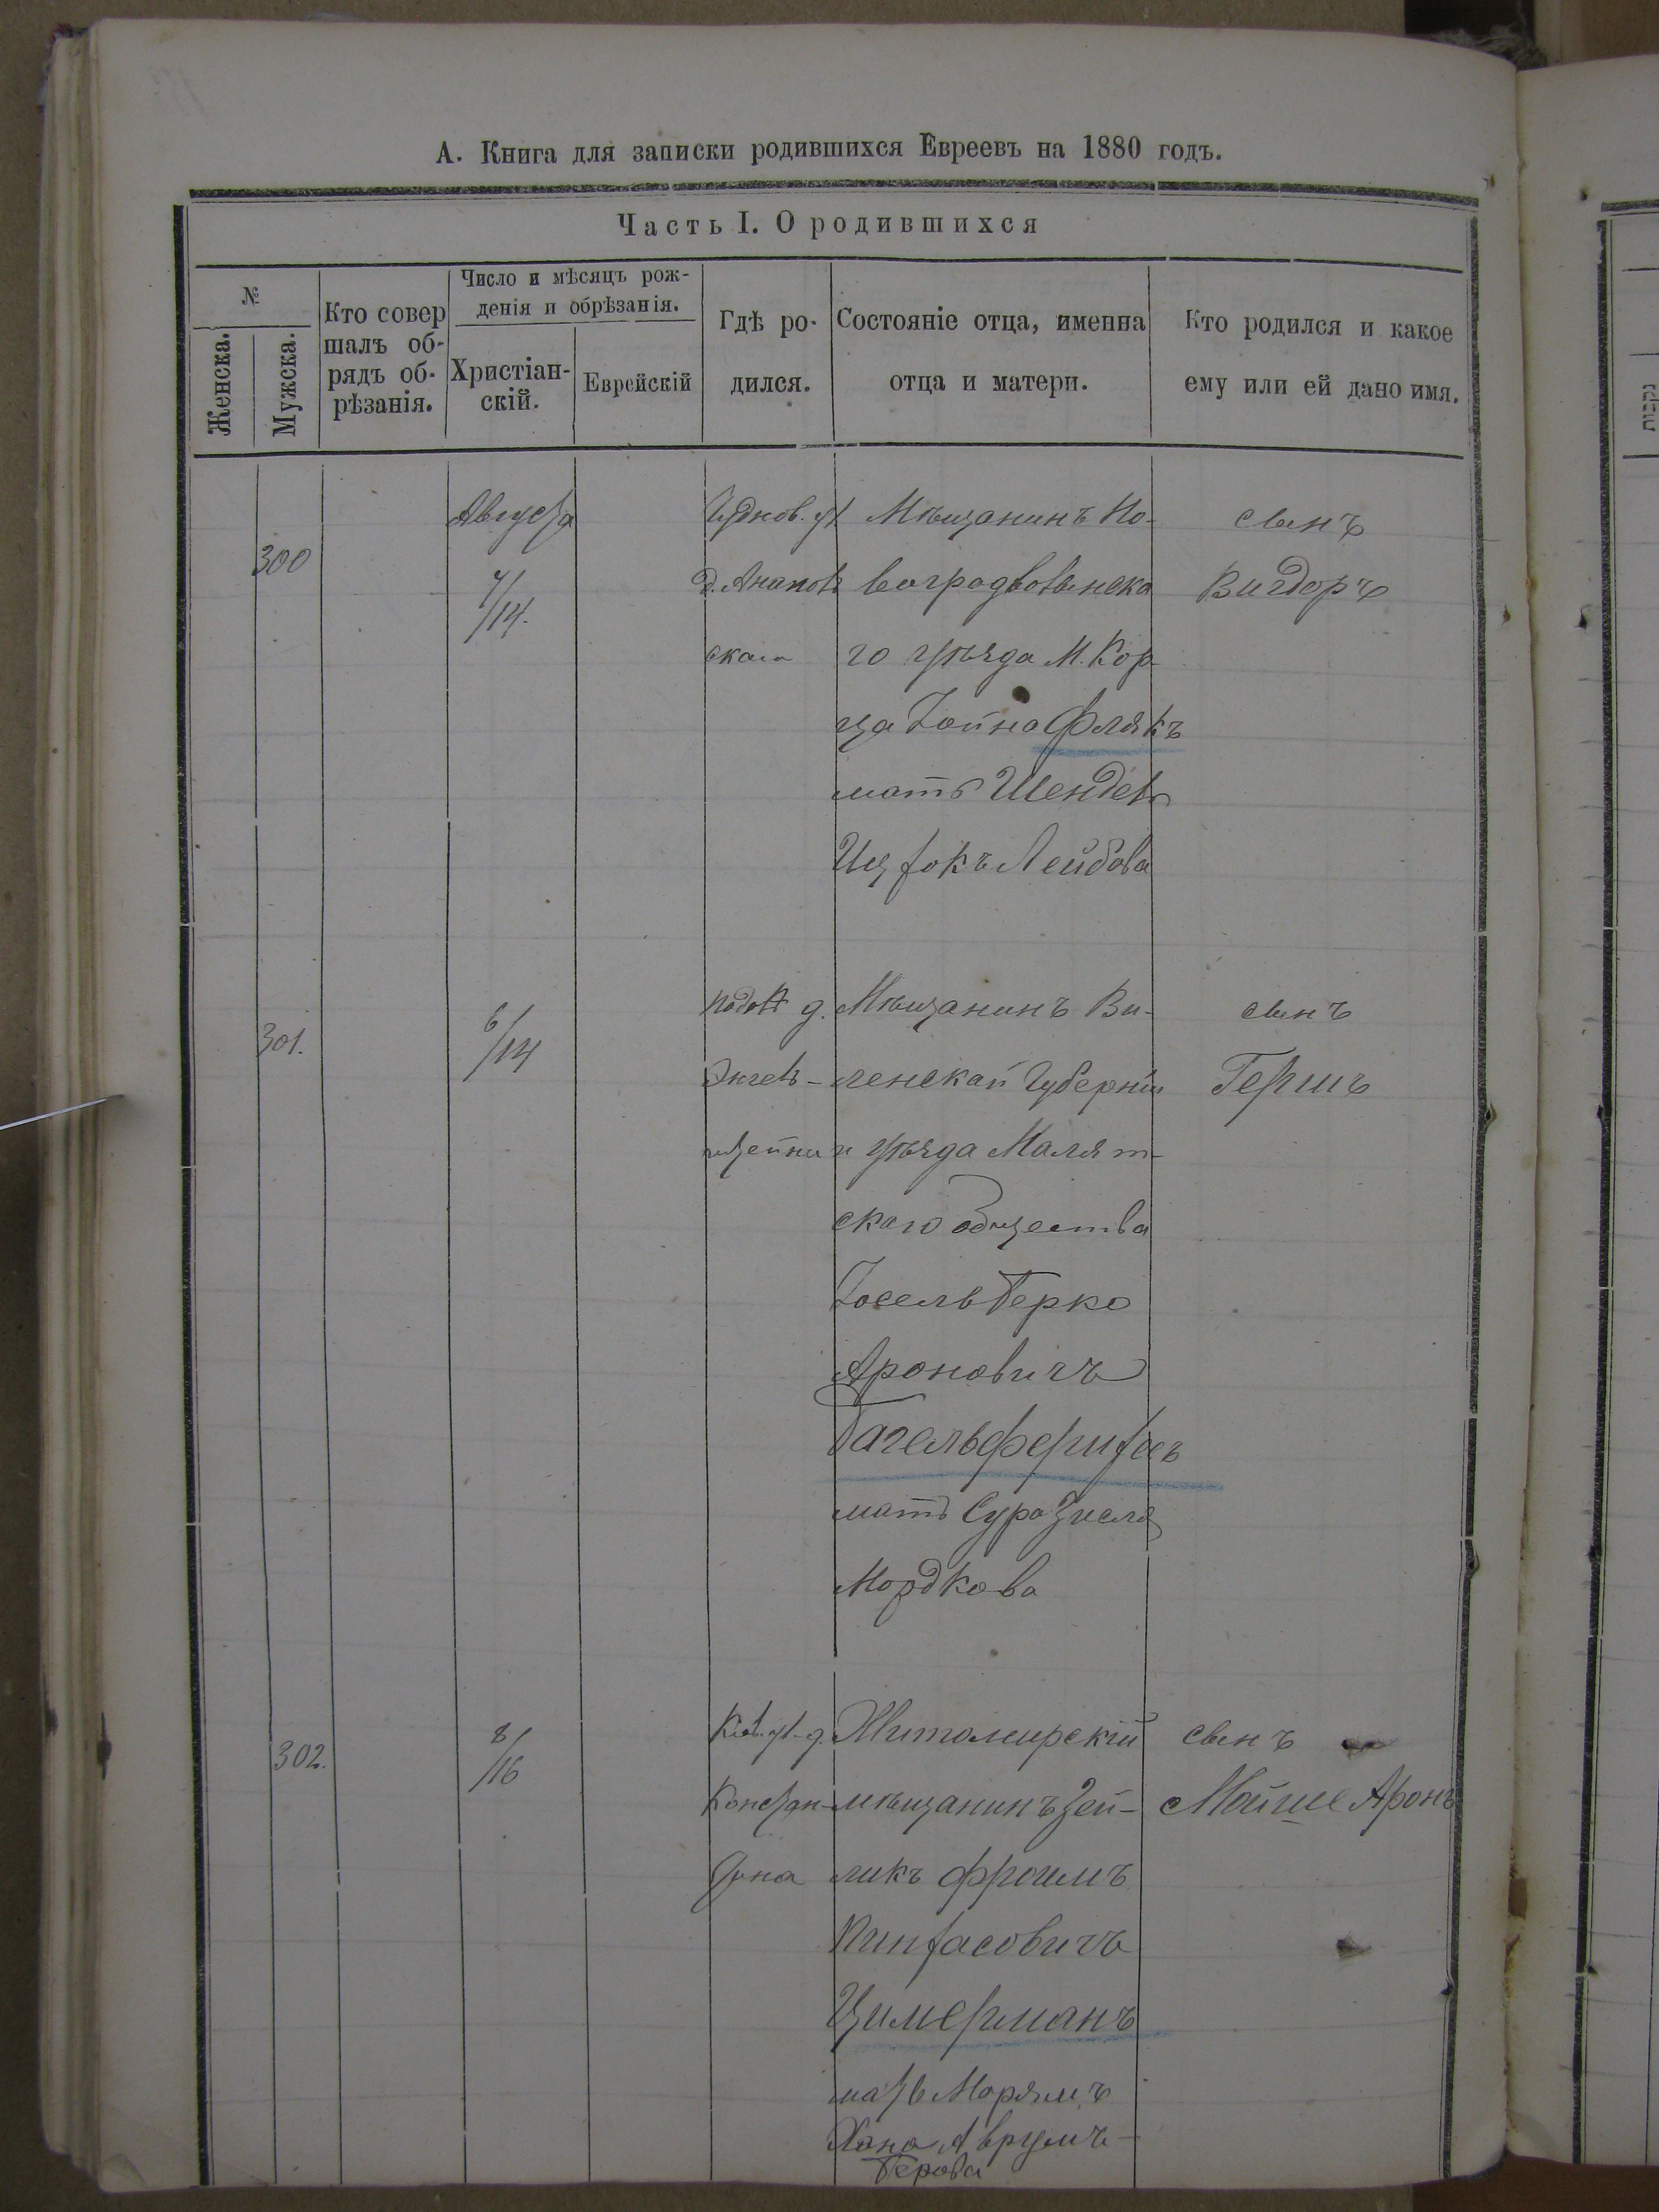 А. Книга для записки родившихся Евреевъ на 1880 годъ.
Часть I. О родившихся
№
Женска.
Мужска.
Кто совер
шалъ об-
рядъ об-
рѣзанія.
Число и мѣсяцъ рож-
денія и обрѣзанія.
Христіан-
скій.
Еврейскій
Гдѣ ро-
дился.
Состояніе отца, именна
отца и матери.
Кто родился и какое
ему или ей дано имя.
300
Августа
7/14.
Чуднов. ул
д. Анапов
скаго
Мѣщанинъ Но-
воградволынска
го уѣзда М. Кор
ца Іойна Флякъ
мать Шендель
Ицхокъ Лейбова
сынъ
Вигдоръ
301.
6/14
подол д.
Мѣщанинъ Ви-
ленской Губерніи
и уѣзда Малят-
скаго общества
Іосель Берко
Ароновичъ
мать Сура Зисля
Мордкова
сынъ
Гершъ
302.
8/16
Кіев. ул. д.
Констан-
тина
Житомирскій
мѣщанинъ Зей-
ликъ Фроимъ
Пинхасовичъ
Цимерманъ
мать Марямъ
Хана Аврумъ-
Берова
сынъ
Мойше Аронъ
נקבות